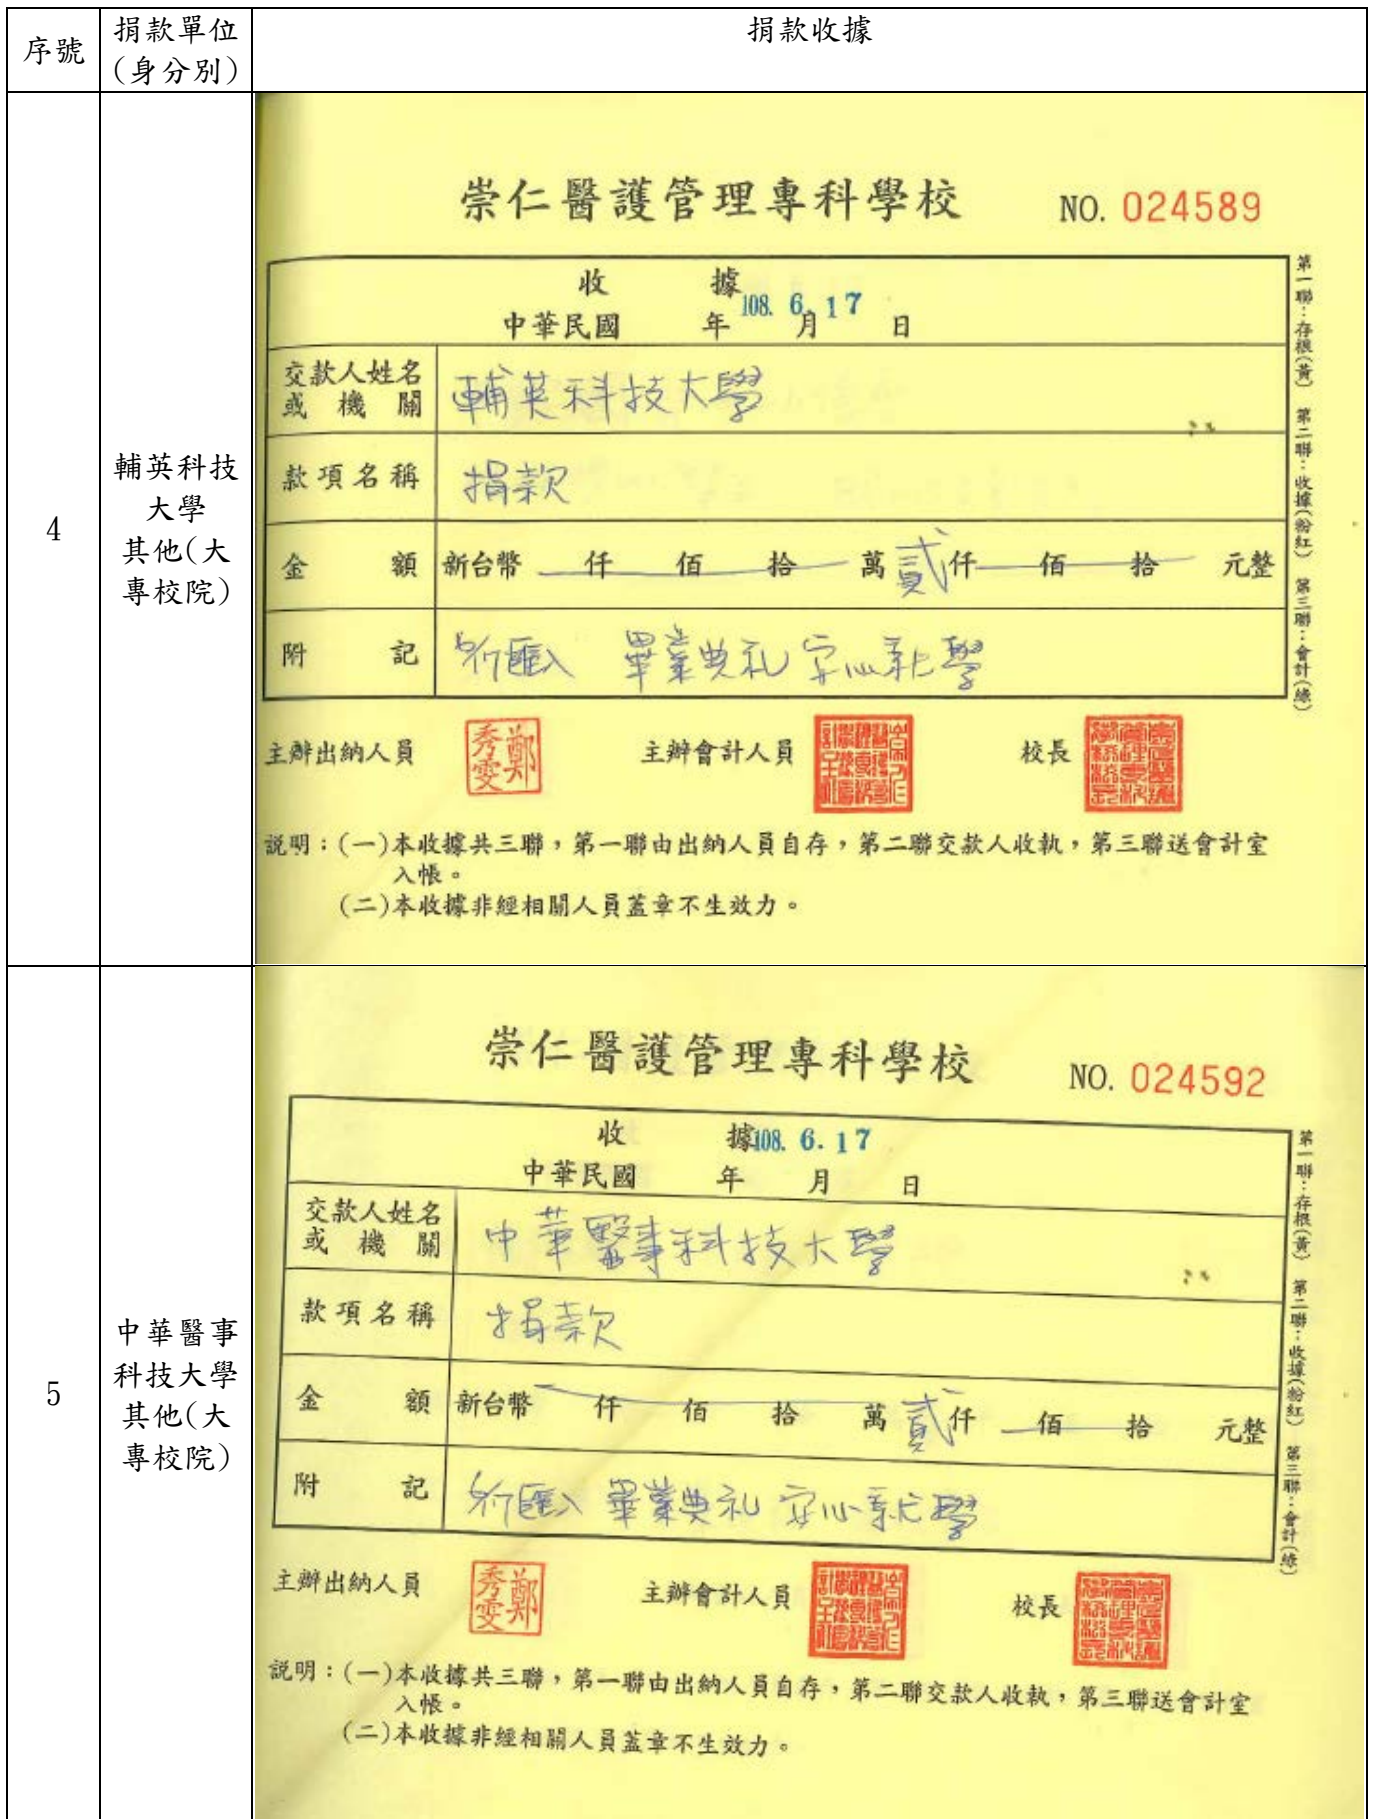 序號 捐款單位 捐款收據
(身分別)
4
輔英科技
大學
其他(大
專校院)
崇仁醫護管理專科學校 NO. 024589
收 據
中華民國 108. 年 6. 月 17 日
交款人姓名
或機關 輔英科技大學
款項名稱 捐款
金額 新台幣 仟 佰 拾 萬 貳仟 佰 拾 元整
附記 匯入 畢業典礼 安心就學
主辦出納人員 鄭秀雯 主辦會計人員 校長
說明：(一)本收據共三聯，第一聯由出納人員自存，第二聯交款人收執，第三聯送會計室
入帳。
(二)本收據非經相關人員蓋章不生效力。
第一聯：存根(黃) 第二聯：收據(粉紅) 第三聯：會計(綠)
5
中華醫事
科技大學
其他(大
專校院)
崇仁醫護管理專科學校 NO. 024592
收 據 108. 6. 17
中華民國 年 月 日
交款人姓名
或機關 中華醫事科技大學
款項名稱 捐款
金額 新台幣 仟 佰 拾 萬 貳仟 佰 拾 元整
附記 匯入 畢業典礼 安心就學
主辦出納人員 鄭秀雯 主辦會計人員 校長
說明：(一)本收據共三聯，第一聯由出納人員自存，第二聯交款人收執，第三聯送會計室
入帳。
(二)本收據非經相關人員蓋章不生效力。
第一聯：存根(黃) 第二聯：收據(粉紅) 第三聯：會計(綠)